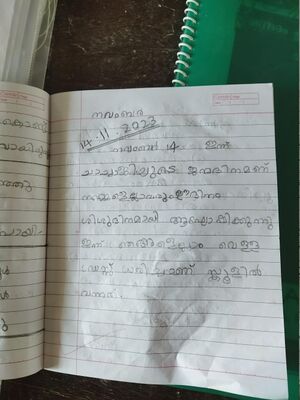 നവംബർ
14.11.2023
നവംബർ 14 ഇന്ന്
ചാച്ചാജിയുടെ ജന്മദിനമണ്
നമ്മളെല്ലാവരുംഈദിനം
ശിശുദിനമായി ആഘോഷിക്കുന്നു
ഇന്ന് ഞങ്ങളെല്ലാം വെള്ള
ഡ്രസ്സ് ധരിച്ചാണ് സ്കൂളിൽ
വന്നത്.